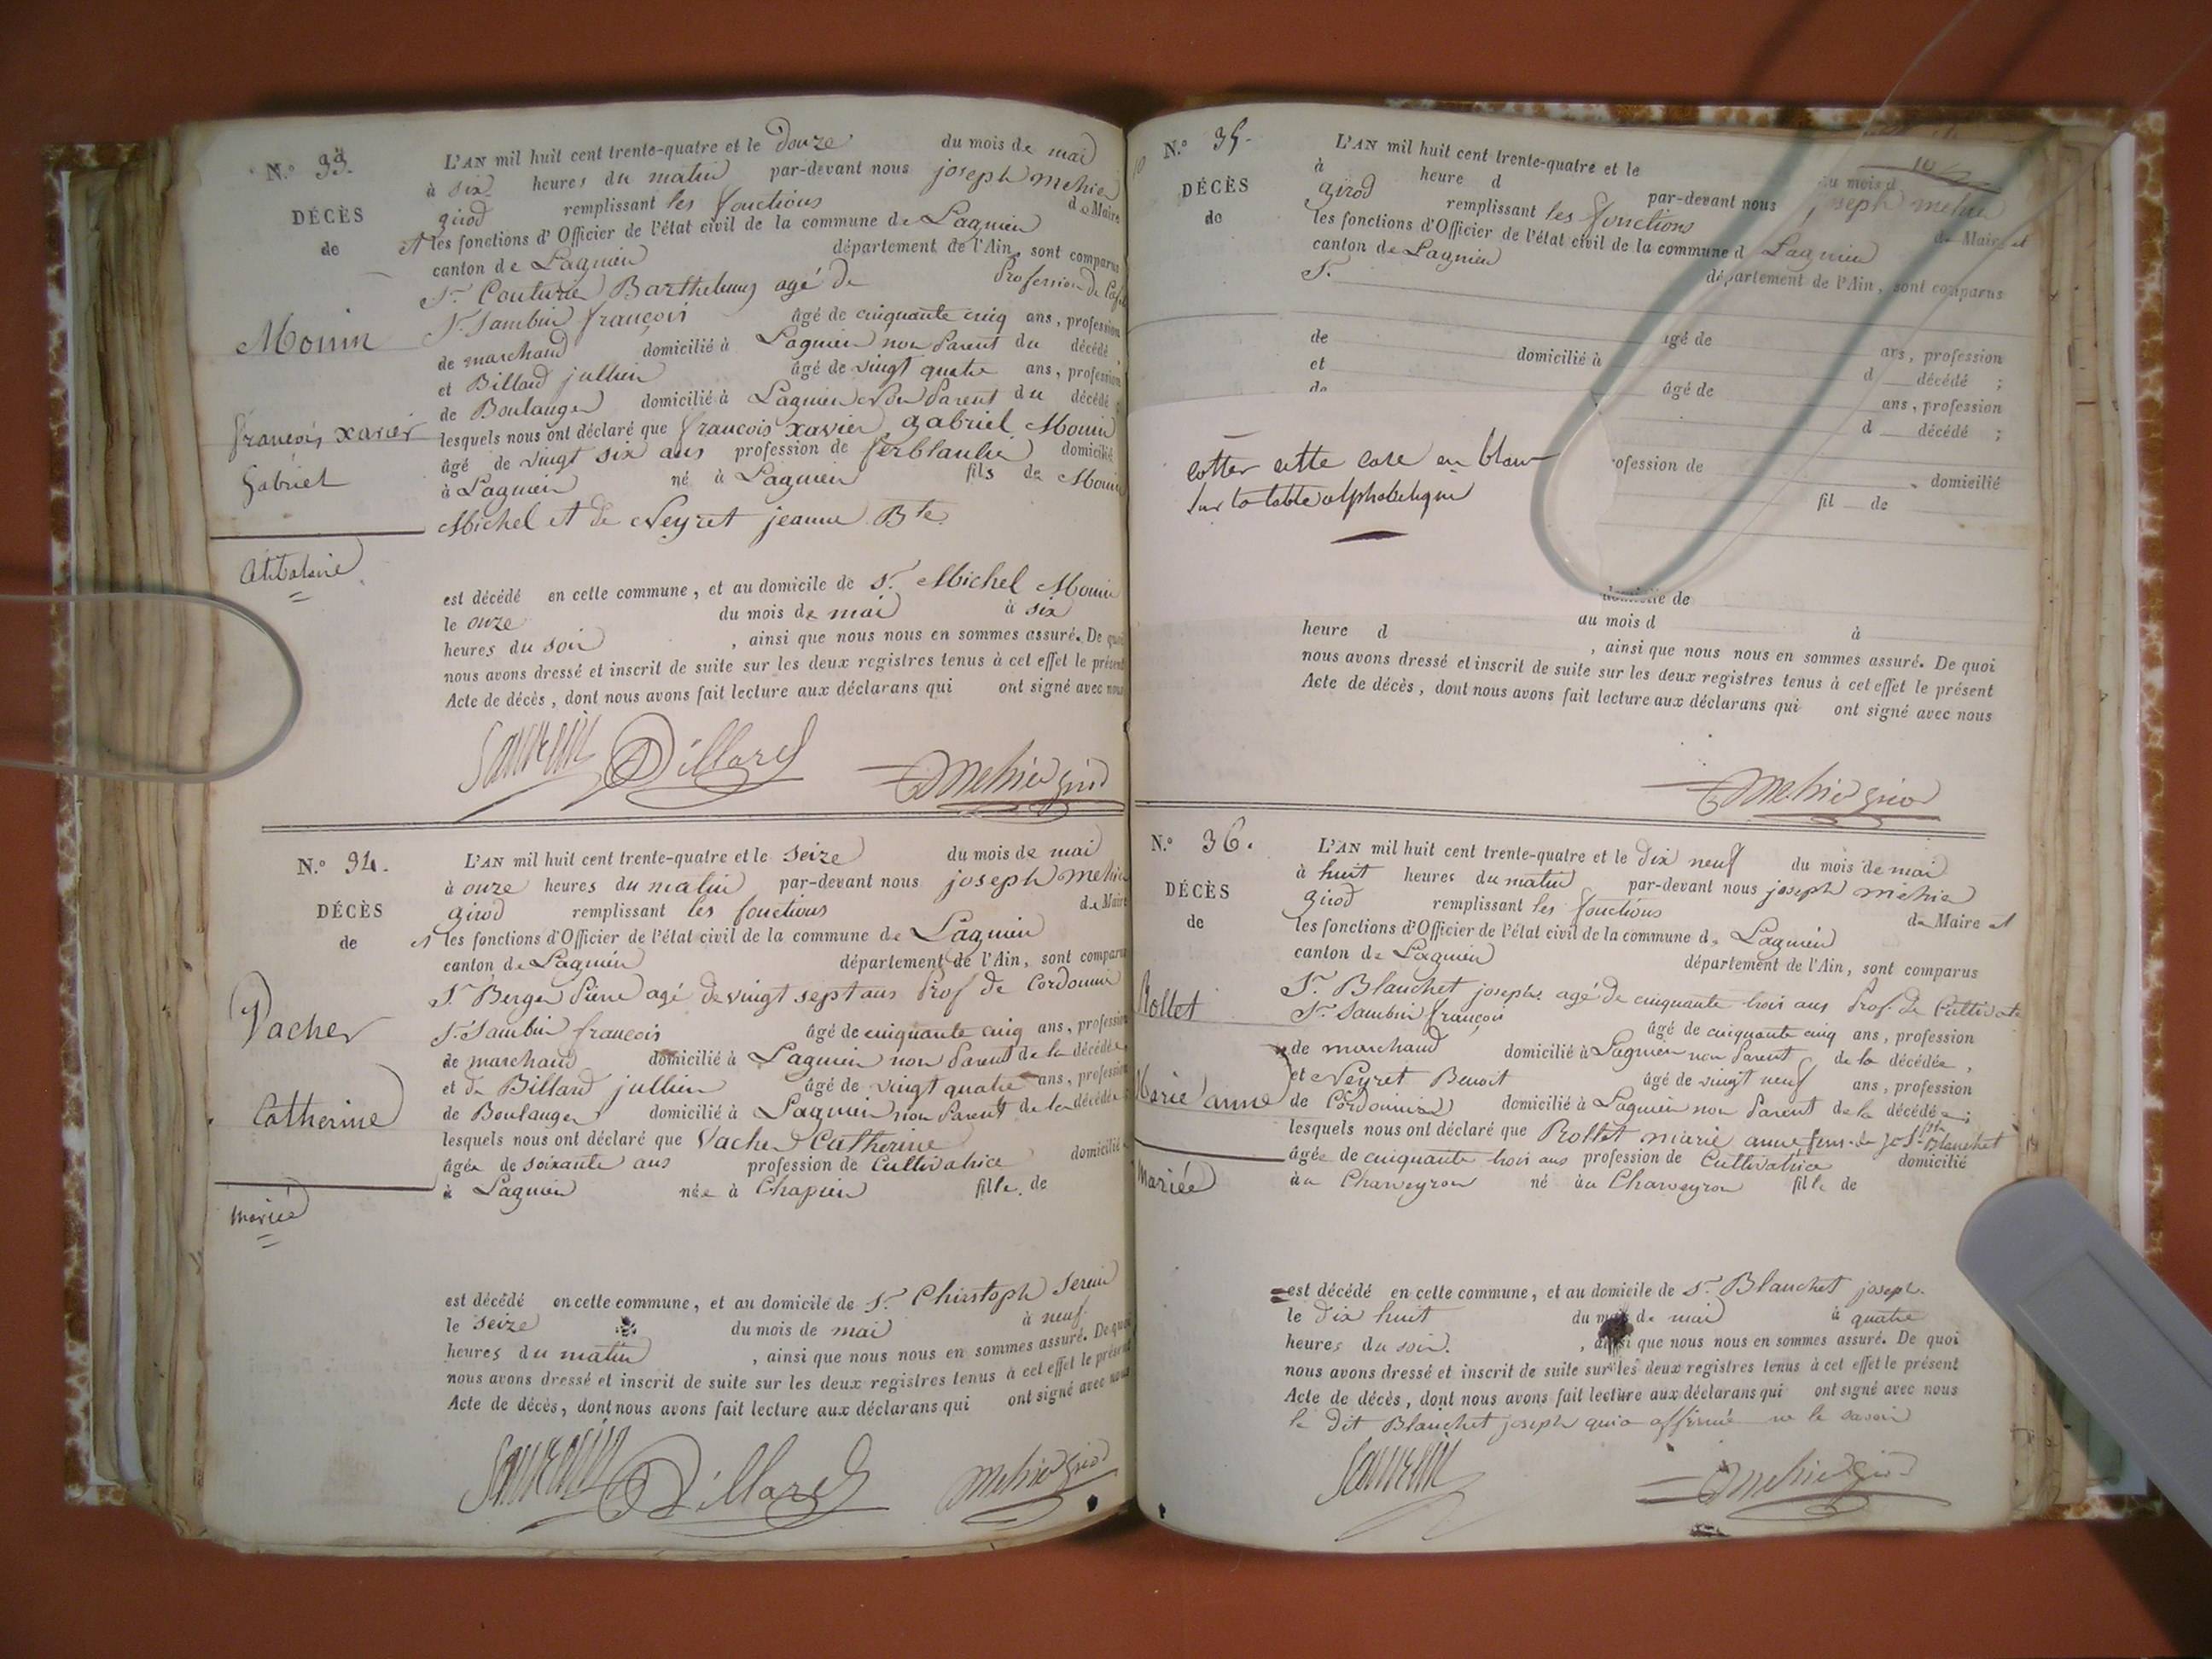 N.° 33.
DÉCÈS
de
Monin
françois xavier
Gabriel
Célibataire
L'AN mil huit cent trente-quatre et le Douze du mois de mai
à six heures du matin par-devant nous joseph mehier
girod remplissant les fonctions de Maire
et les fonctions d'Officier de l'état civil de la commune de Lagnieu
canton de Lagnieu département de l'Ain, sont comparus
Sr. Couturier Barthelemy agé de Profession de
Sr. Sambin françois âgé de cinquante cinq ans, profession
de marchand domicilié à Lagnieu non Parent du décédé,
et Billard jullien âgé de vingt quatre ans, profession
de Boulanger domicilié à Lagnieu non Parent du décédé;
lesquels nous ont déclaré que francois xavier gabriel Monin
âgé de vingt six ans profession de ferblantier domicilié
à Lagnieu né à Lagnieu fils de Monin
Michel et de Neyret jeanne Bte.
est décédé en cette commune, et au domicile de Sr. Michel Monin
le onze du mois de mai à six
heures du soir, ainsi que nous nous en sommes assuré. De quoi
nous avons dressé et inscrit de suite sur les deux registres tenus à cet effet le présent
Acte de décès, dont nous avons fait lecture aux déclarans qui ont signé avec nous
Billard mehier girod
N.° 34.
DÉCÈS
de
Vacher
Catherine
mariée
L'AN mil huit cent trente-quatre et le seize du mois de mai
à onze heures du matin par-devant nous joseph mehier
girod remplissant les fonctions de Maire
et les fonctions d'Officier de l'état civil de la commune de Lagnieu
canton de Lagnieu département de l'Ain, sont comparus
Sr. Berger Pierre agé de vingt sept ans Prof de Cordonnier
Sr. Sambin françois âgé de cinquante cinq ans, profession
de marchand domicilié à Lagnieu non Parent de la décédée,
et de Billard jullien âgé de vingt quatre ans, profession
de Boulanger domicilié à Lagnieu non Parent de la décédée;
lesquels nous ont déclaré que Vacher Catherine
âgée de soixante ans profession de Cultivatrice domicilié
à Lagnieu née à Chapieu fille de
est décédé en cette commune, et au domicile de Sr. Christoph Serein
le seize du mois de mai à neuf
heures du matin, ainsi que nous nous en sommes assuré. De quoi
nous avons dressé et inscrit de suite sur les deux registres tenus à cet effet le présent
Acte de décès, dont nous avons fait lecture aux déclarans qui ont signé avec nous
Billard mehier girod
N.° 35.
DÉCÈS
de
L'AN mil huit cent trente-quatre et le du mois d
à heure d par-devant nous joseph mehier
girod remplissant les fonctions de Maire et
les fonctions d'Officier de l'état civil de la commune d Lagnieu
canton de Lagnieu département de l'Ain, sont comparus
Sr.
âgé de ans, profession
de domicilié à d décédé;
et âgé de ans, profession
de d décédé;
profession de domicilié
fil de
cotter cette case en blanc
sur la table alphabetique
domicile de
du mois d à
heure d, ainsi que nous nous en sommes assuré. De quoi
nous avons dressé et inscrit de suite sur les deux registres tenus à cet effet le présent
Acte de décès, dont nous avons fait lecture aux déclarans qui ont signé avec nous
mehier girod
N.° 36.
DÉCÈS
de
Rollet
Marie anne
Mariée
L'AN mil huit cent trente-quatre et le dix neuf du mois de mai
à huit heures du matin par-devant nous joseph mehier
girod remplissant les fonctions de Maire et
les fonctions d'Officier de l'état civil de la commune de Lagnieu
canton de Lagnieu département de l'Ain, sont comparus
Sr. Blanchet joseph agé de cinquante trois ans Prof. de Cultivate
Sr. Sambin françois âgé de cinquante cinq ans, profession
de marchand domicilié à Lagnieu non Parent de la décédée,
et Neyret Benoit âgé de vingt neuf ans, profession
de Cordonnier domicilié à Lagnieu non Parent de la décédée;
lesquels nous ont déclaré que Rollet marie anne fem. de jos. Blanchet
âgée de cinquante trois ans profession de Cultivatrice domicilié
au Charveyron né au Charveyron fille de
est décédé en cette commune, et au domicile de Sr. Blanchet joseph.
le dix huit du mois de mai à quatre
heures du soir., ainsi que nous nous en sommes assuré. De quoi
nous avons dressé et inscrit de suite sur les deux registres tenus à cet effet le présent
Acte de décès, dont nous avons fait lecture aux déclarans qui ont signé avec nous
le dit Blanchet joseph qui a affirmé ne le savoir
mehier girod